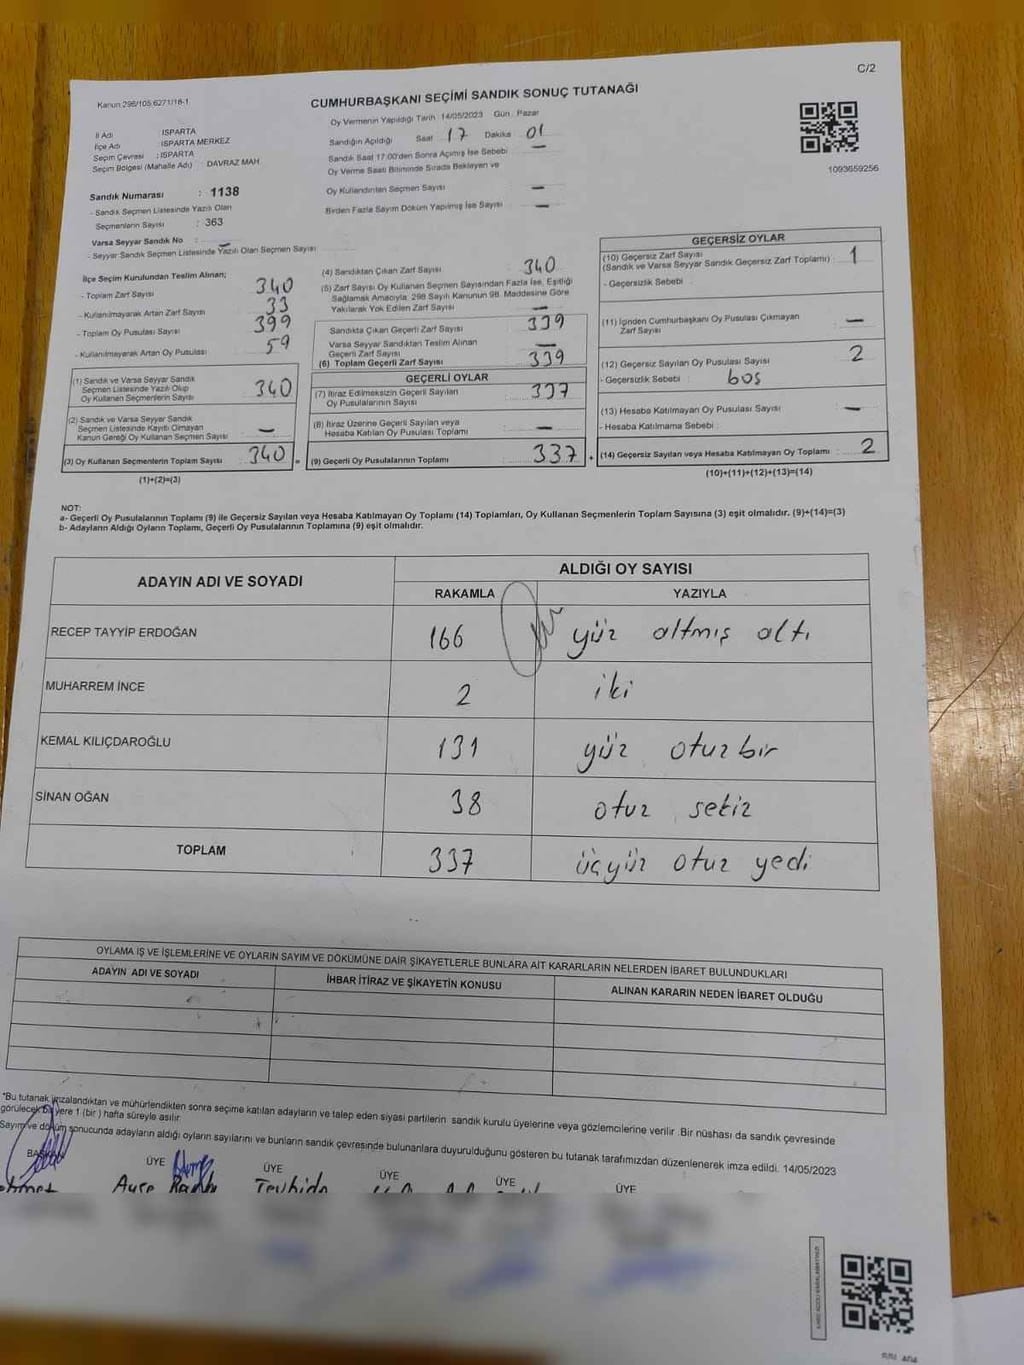 C/2
Kanun 298/105 6271/18-1
CUMHURBAŞKANI SEÇİMİ SANDIK SONUÇ TUTANAĞI
Oy Vermenin Yapıldığı Tarih 14/05/2023 Gün Pazar
İl Adı ISPARTA
İlçe Adı ISPARTA MERKEZ
Seçim Çevresi : ISPARTA
Seçim Bölgesi (Mahalle Adı) : DAVRAZ MAH.
Sandığın Açıldığı Saat 17 Dakika 01
Sandık Saat 17:00'den Sonra Açılmış İse Sebebi —
Oy Verme Saati Bitiminde Sırada Bekleyen ve
Oy Kullandırılan Seçmen Sayısı —
Birden Fazla Sayım Döküm Yapılmış İse Sayısı —
1093659256
Sandık Numarası : 1138
- Sandık Seçmen Listesinde Yazılı Olan
Seçmenlerin Sayısı : 363
Varsa Seyyar Sandık No : —
- Seyyar Sandık Seçmen Listesinde Yazılı Olan Seçmen Sayısı
İlçe Seçim Kurulundan Teslim Alınan;
- Toplam Zarf Sayısı 340
- Kullanılmayarak Artan Zarf Sayısı 33
- Toplam Oy Pusulası Sayısı 399
- Kullanılmayarak Artan Oy Pusulası 59
(1) Sandık ve Varsa Seyyar Sandık
Seçmen Listesinde Yazılı Olup
Oy Kullanan Seçmenlerin Sayısı 340
(2) Sandık ve Varsa Seyyar Sandık
Seçmen Listesinde Kayıtlı Olmayan
Kanun Gereği Oy Kullanan Seçmen Sayısı —
(3) Oy Kullanan Seçmenlerin Toplam Sayısı 340
(1)+(2)=(3)
(4) Sandıktan Çıkan Zarf Sayısı 340
(5) Zarf Sayısı Oy Kullanan Seçmen Sayısından Fazla İse, Eşitliği
Sağlamak Amacıyla; 298 Sayılı Kanunun 98. Maddesine Göre
Yakılarak Yok Edilen Zarf Sayısı —
Sandıkta Çıkan Geçerli Zarf Sayısı 339
Varsa Seyyar Sandıktan Teslim Alınan
Geçerli Zarf Sayısı —
(6) Toplam Geçerli Zarf Sayısı 339
GEÇERLİ OYLAR
(7) İtiraz Edilmeksizin Geçerli Sayılan
Oy Pusulalarının Sayısı 337
(8) İtiraz Üzerine Geçerli Sayılan veya
Hesaba Katılan Oy Pusulası Toplamı —
= (9) Geçerli Oy Pusulalarının Toplamı 337 +
GEÇERSİZ OYLAR
(10) Geçersiz Zarf Sayısı
(Sandık ve Varsa Seyyar Sandık Geçersiz Zarf Toplamı) : 1
- Geçersizlik Sebebi :
(11) İçinden Cumhurbaşkanı Oy Pusulası Çıkmayan
Zarf Sayısı —
(12) Geçersiz Sayılan Oy Pusulası Sayısı 2
- Geçersizlik Sebebi : boş
(13) Hesaba Katılmayan Oy Pusulası Sayısı —
- Hesaba Katılmama Sebebi :
(14) Geçersiz Sayılan veya Hesaba Katılmayan Oy Toplamı : 2
(10)+(11)+(12)+(13)=(14)
NOT:
a- Geçerli Oy Pusulalarının Toplamı (9) ile Geçersiz Sayılan veya Hesaba Katılmayan Oy Toplamı (14) Toplamları, Oy Kullanan Seçmenlerin Toplam Sayısına (3) eşit olmalıdır. (9)+(14)=(3)
b- Adayların Aldığı Oyların Toplamı, Geçerli Oy Pusulalarının Toplamına (9) eşit olmalıdır.
ADAYIN ADI VE SOYADI ALDIĞI OY SAYISI
RAKAMLA YAZIYLA
RECEP TAYYİP ERDOĞAN 166 yüz altmış altı
MUHARREM İNCE 2 iki
KEMAL KILIÇDAROĞLU 131 yüz otuzbir
SİNAN OĞAN 38 otuz sekiz
TOPLAM 337 üçyüz otuz yedi
OYLAMA İŞ VE İŞLEMLERİNE VE OYLARIN SAYIM VE DÖKÜMÜNE DAİR ŞİKAYETLERLE BUNLARA AİT KARARLARIN NELERDEN İBARET BULUNDUKLARI
ADAYIN ADI VE SOYADI İHBAR İTİRAZ VE ŞİKAYETİN KONUSU ALINAN KARARIN NEDEN İBARET OLDUĞU
*Bu tutanak imzalandıktan ve mühürlendikten sonra seçime katılan adayların ve talep eden siyasi partilerin sandık kurulu üyelerine veya gözlemcilerine verilir .Bir nüshası da sandık çevresinde
görülecek bir yere 1 (bir ) hafta süreyle asılır.
Sayım ve döküm sonucunda adayların aldığı oyların sayılarını ve bunların sandık çevresinde bulunanlara duyurulduğunu gösteren bu tutanak tarafımızdan düzenlenerek imza edildi. 14/05/2023
BAŞKAN ÜYE ÜYE ÜYE ÜYE ÜYE
Ayşe Tevhide